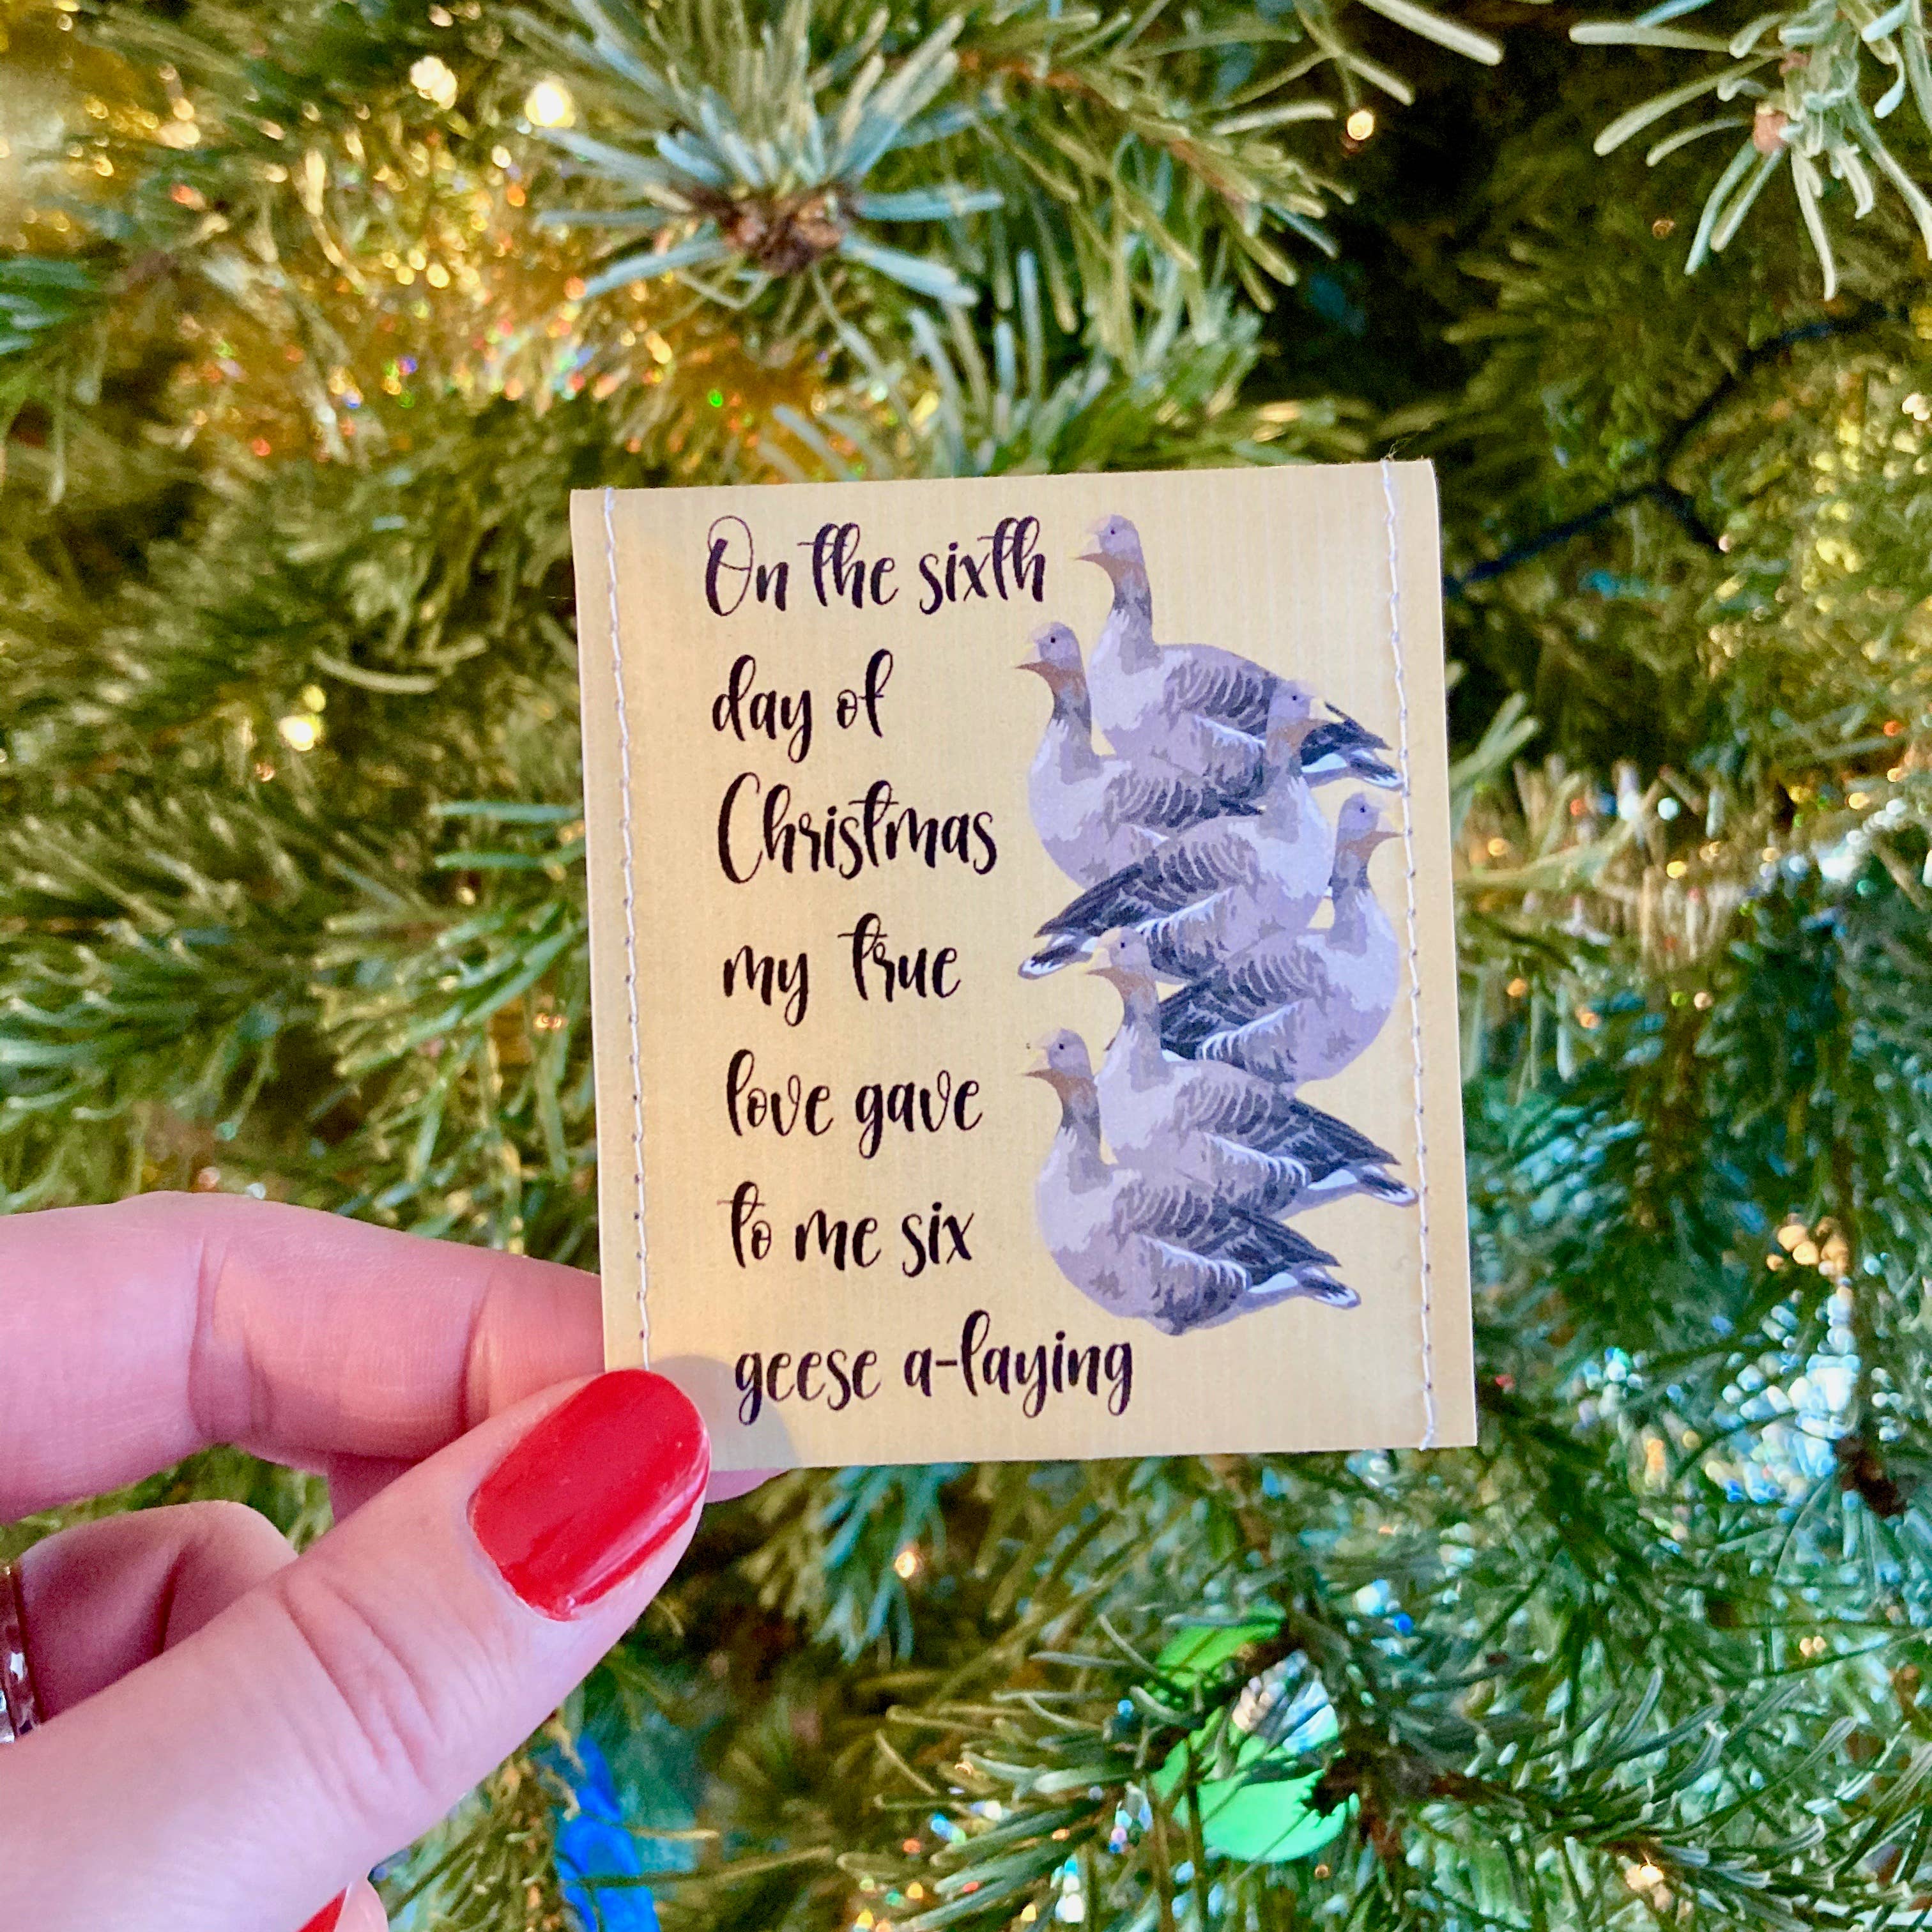 On the sixth
day of
Christmas
my true
love gave
to me six
geese a-laying